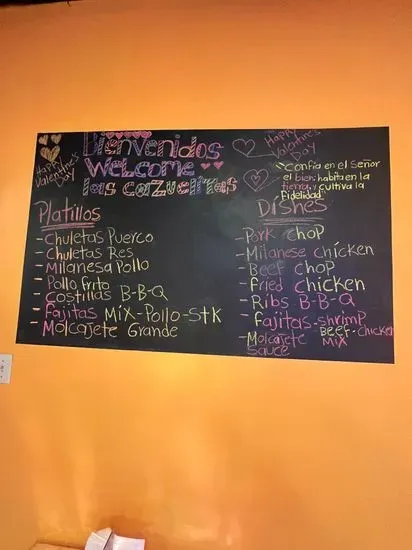 Bienvenidos
Welcome
las cazuelitas
Happy
Valentine's
Day
Happy
Valentine's
Day
"Confía en el Señor
el bien; habita en la
tierra, y cultiva la
Fidelidad
Platillos
- Chuletas Puerco
- Chuletas Res
- Milanesa Pollo
- Pollo frito
- Costillas B-B-Q
- Fajitas Mix-Pollo-Stk
- Molcajete Grande
Dishes
- Pork Chop
- Milanese chicken
- Beef chop
- fried Chicken
- Ribs B-B-Q
- fajitas-shrimp
Beef-Chicken
Mix
- Molcajete
Sauce